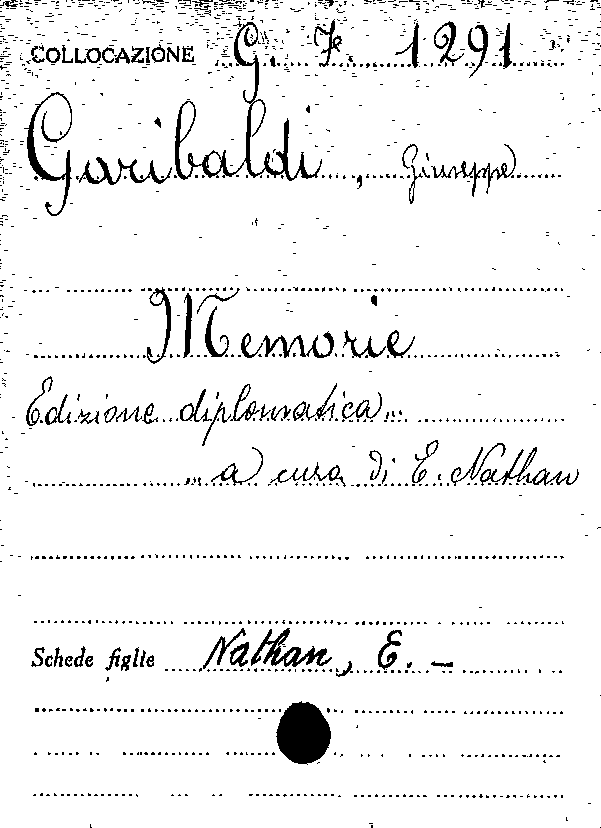 COLLOCAZIONE G. F. 1291
Garibaldi, Giuseppe
Memorie
Edizione diplomatica...
... a cura di E. Nathan
Schede figlie Nathan, E. –